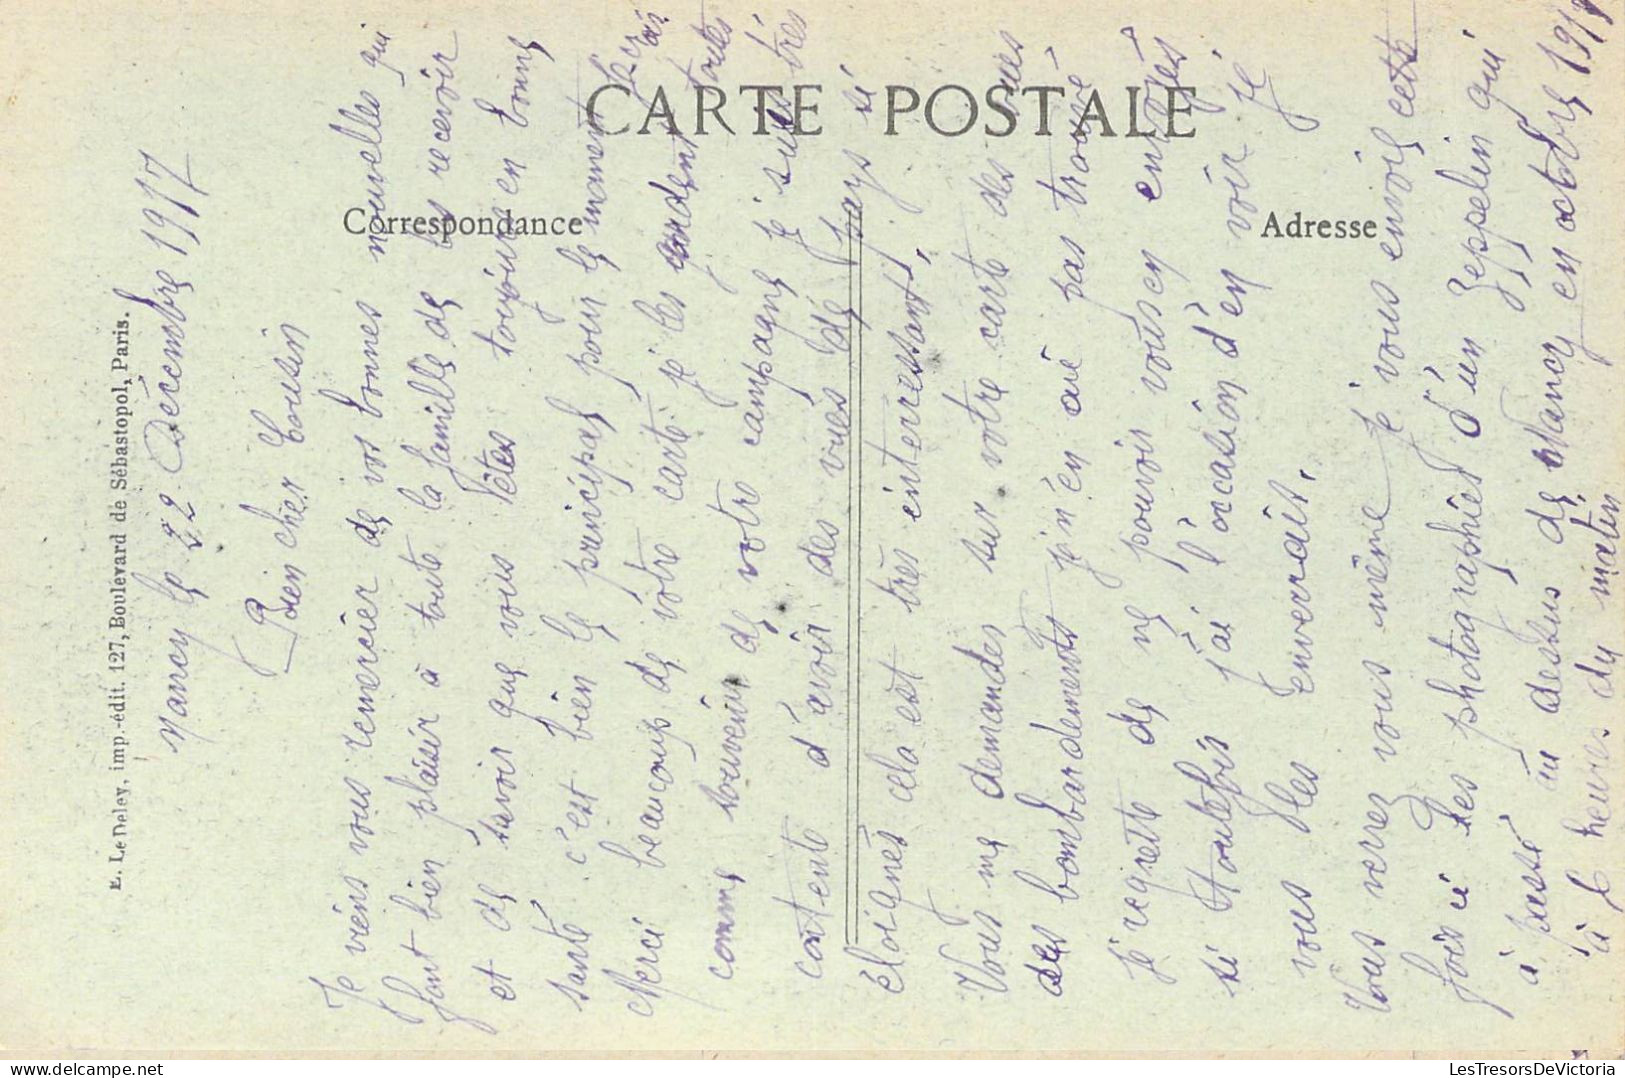 CARTE POSTALE
Correspondance
Adresse
E. Le Deley, imp.-édit. 127, Boulevard de Sébastopol, Paris.
Nancy le 22 Décembre 1917
Bien cher Cousin
Je viens vous remercier de vos bonnes nouvelles qui
font bien plaisir à toute la famille de les recevoir
et de savoir que vous êtes toujours en bonne
santé c'est bien le principal pour le moment
Merci beaucoup de votre carte je les gardent toutes
comme souvenir de votre campagne je suis très
contente d'avoir des vues de pays si
éloignés cela est très interressant,
Vous me demandes sur votre carte des vues
des bombardements je n'en aie pas trouvé
je regrette de ne pouvoir vous en envoyés
si toutefois j'ai l'occasion d'en voir je
vous les enverrait,
Vous verrez vous même je vous envoie cette
fois ci les photographies d'un Zeppelin qui
à passé au dessus de Nancy en octobre 1917
à 6 heures du matin
LesTresorsDeVictoria.com
LesTresorsDeVictoria